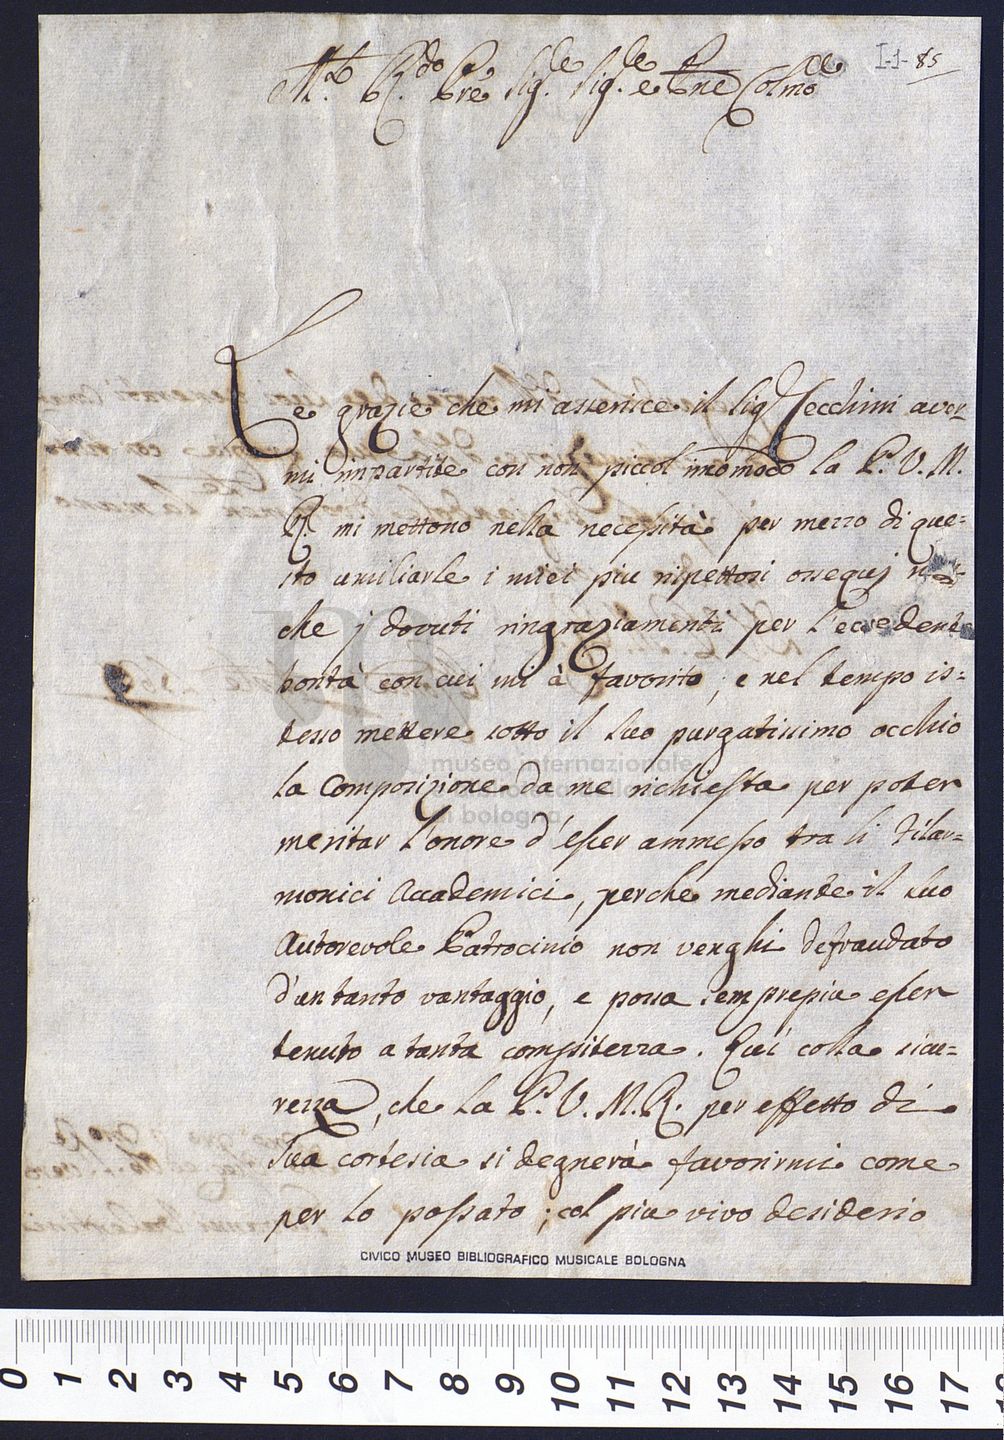 I-1-85
M.to R.do Pre Sig.e Sig.e e Pne Colmo
Le grazie che mi asserisce il Sig.r Cecchini aver-
mi impartite con non piccol incomodo la P. V. M.
R. mi mettono nella necessità per mezzo di que-
sto umiliarle i miei piu rispettosi ossequj
che j dovuti ringraziamenti per l'eccedente
bontà con cui mi à favorito, e nel tempo is-
tesso mettere sotto il suo purgatissimo occhio
la Composizione da me richiesta per poter
meritar l'onore d'esser ammesso tra li Filar-
monici Accademici, perche mediante il suo
Autorevole Patrocinio non venghi defraudato
d'un tanto vantaggio, e possa semprepiu esser
tenuto a tanta compitezza. Qui colla sicu-
rezza, che la P. V. M. R. per effetto di
sua cortesia si degnerà favorirmi come
per lo passato; col piu vivo desiderio
CIVICO MUSEO BIBLIOGRAFICO MUSICALE BOLOGNA
museo internazionale
di bologna
0 1 2 3 4 5 6 7 8 9 10 11 12 13 14 15 16 17